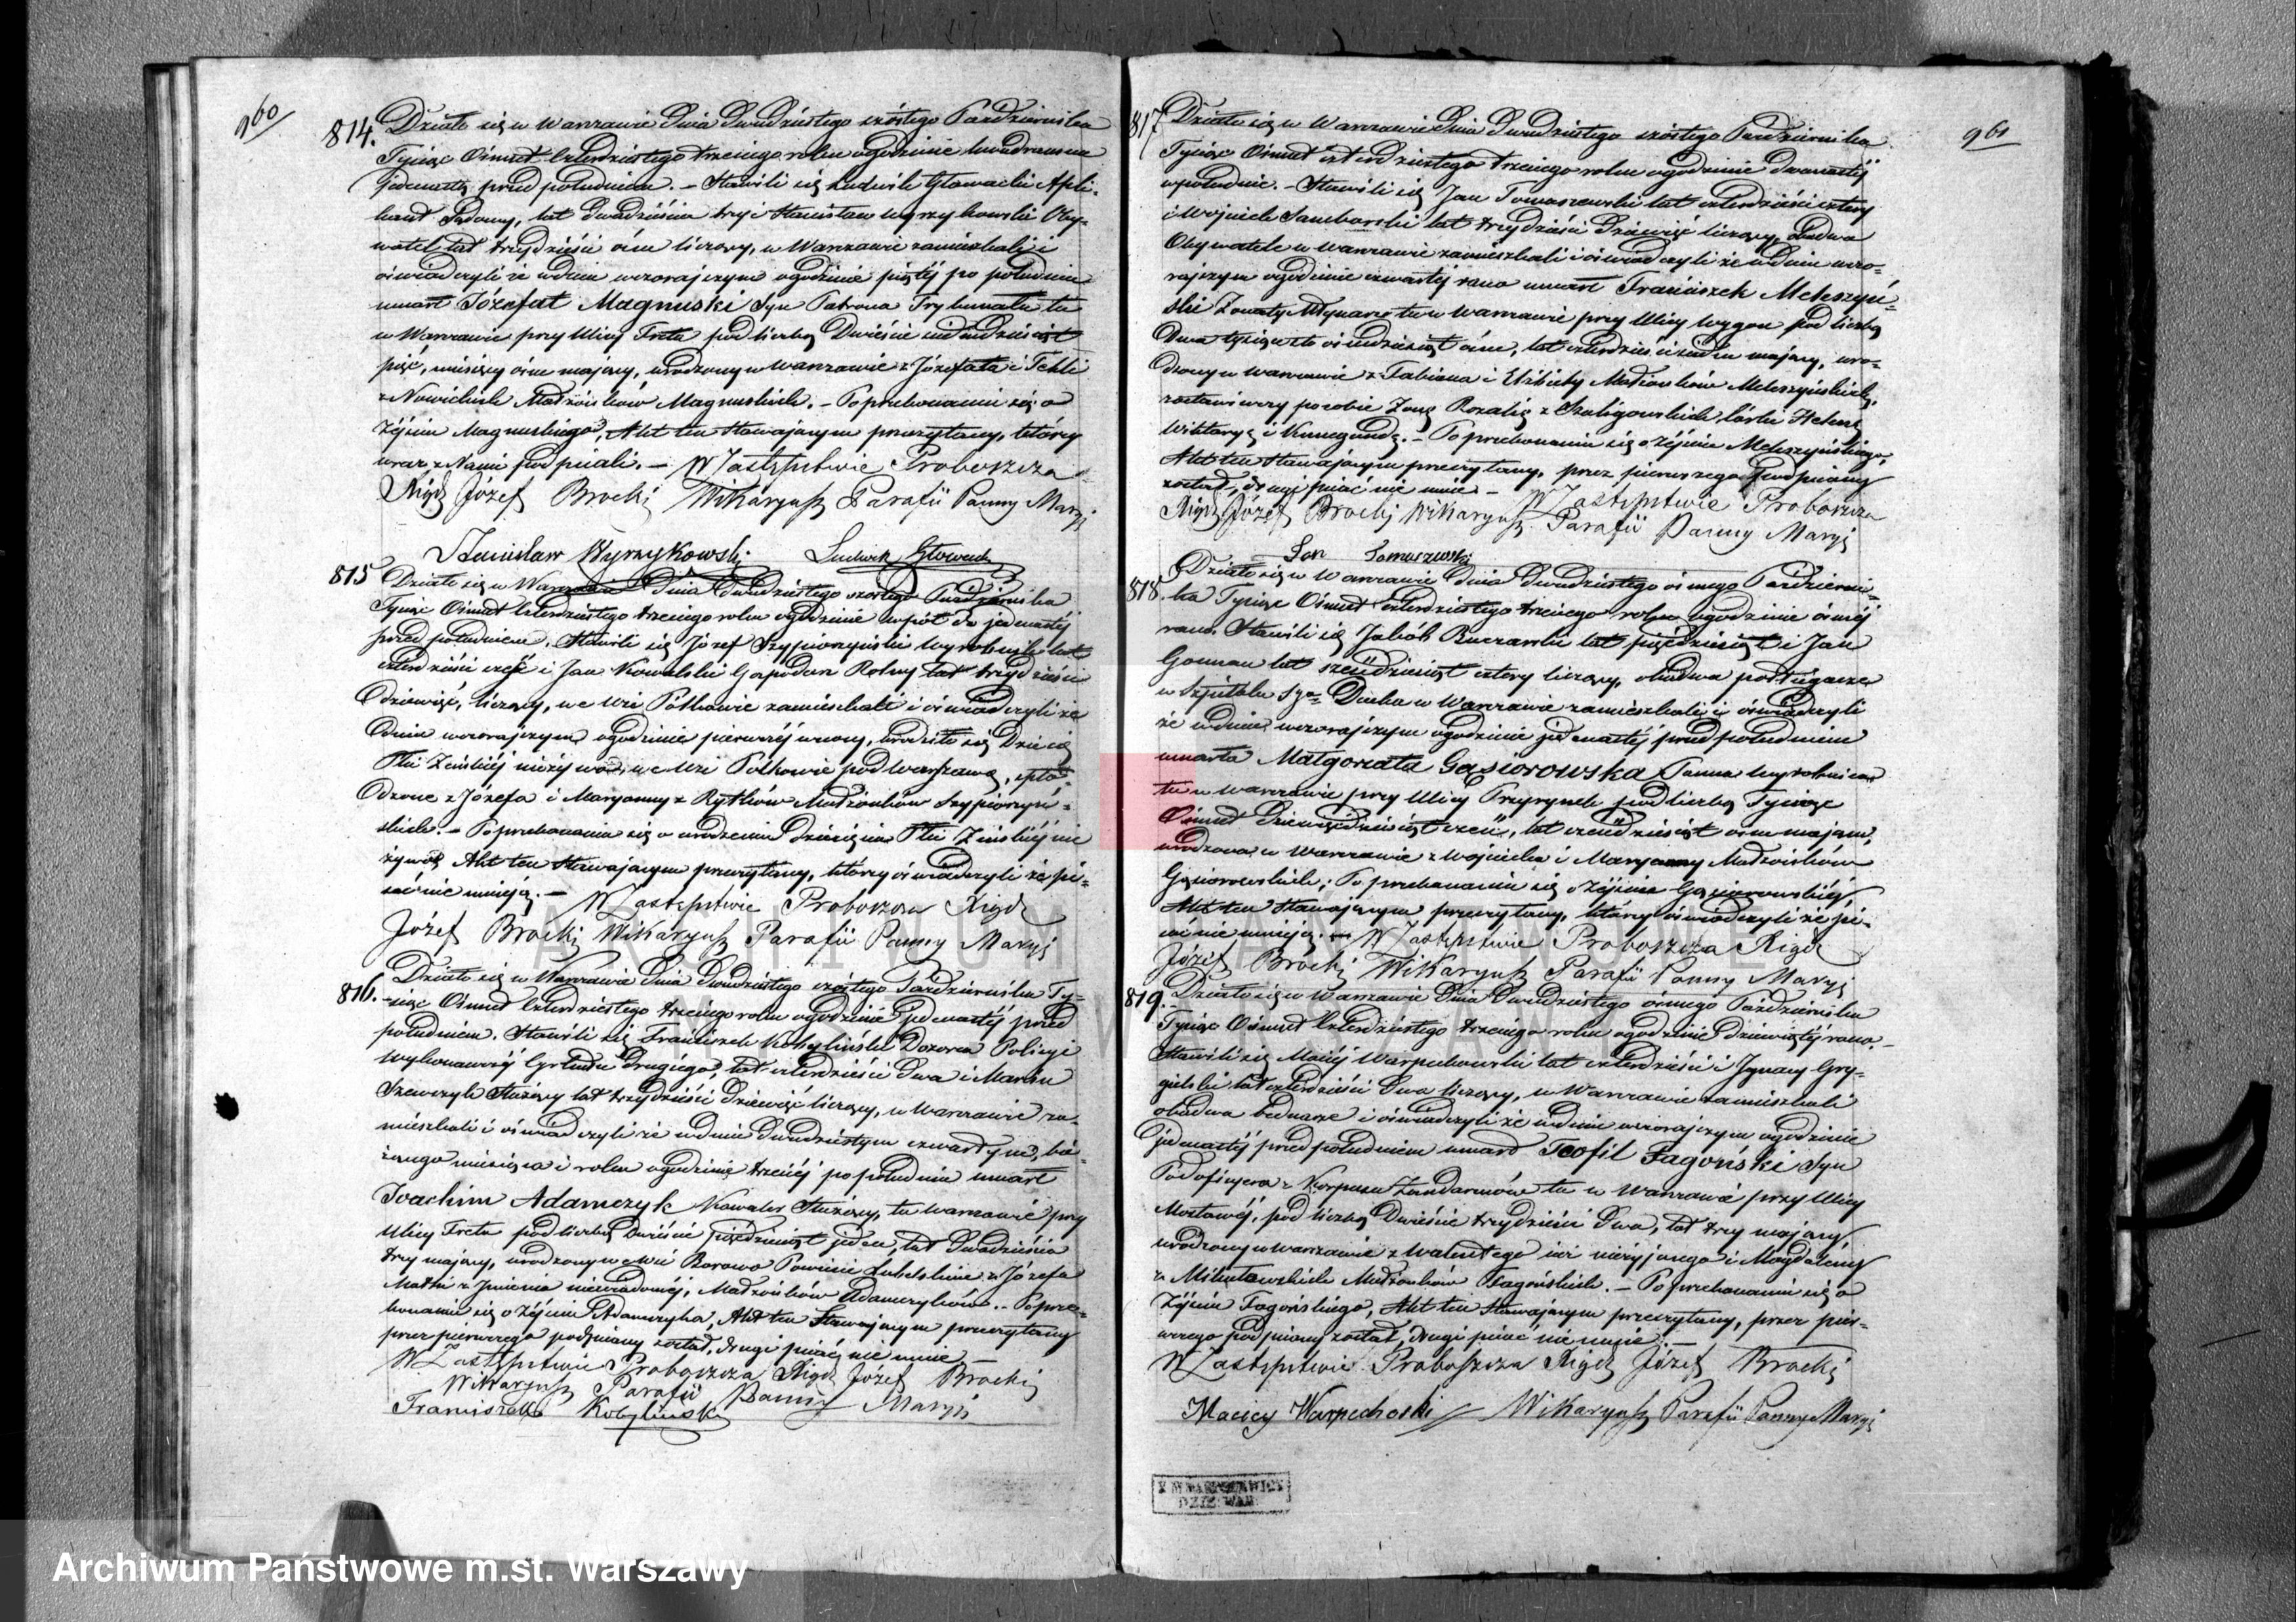 960
814. Działo się w Warszawie dnia dwudziestego szóstego Października
Tysiąc Ośmset Czterdziestego trzeciego roku o godzinie kwadrans na
jedenastą przed południem. – Stawili się Ludwik Głowacki Apli-
kant Sądowy, lat dwadzieścia trzy i Stanisław Wyrzykowski Oby-
watel lat trzydzieści ośm liczący, w Warszawie zamieszkali i
oświadczyli że w dniu wczorajszym o godzinie piątéj po południu
umarł Józefat Magnuski Syn Patrona Trybunału tu
w Warszawie przy Ulicy Freta pod liczbą Dwieście siedmdziesiąt
pięć, miesięcy ośm mający, urodzony w Warszawie z Józefata i Tekli
z Nowickich Małżonków Magnuskich. – Po przekonaniu się o
Zejściu Magnuskiego, Akt ten Stawającym przeczytany, którzy
wraz z Nami podpisali. – W Zastępstwie Proboszcza
Xiądz Józef Brocki Wikaryusz Parafii Panny Maryi
Stanisław Wyrzykowski Ludwik Głowacki
815 Działo się w Warszawie dnia dwudziestego szóstego Października
Tysiąc Ośmset Czterdziestego trzeciego roku o godzinie wpół do jedenastéj
przed południem. Stawili się Józef Szypiorzyński Wyrobnik lat
czterdzieści sześć i Jan Kowalski Gospodarz Rolny lat trzydzieści
dziewięć, liczący, we Wsi Pólkowie zamieszkali i oświadczyli że
dniu wczorajszym o godzinie pierwszéj w nocy, urodziło się Dziecię
Płci Zeńskiéj nieżywe we Wsi Pólkowie pod Warszawą, spło-
dzone z Józefa i Maryanny z Rytków Małżonków Szypiorzyń-
skich. – Po przekonaniu się o urodzeniu dziecięcia Płci Zeńskiéj nie
żywéj Akt ten Stawającym przeczytany, którzy oświadczyli że pi-
sać nie umieją. – W Zastępstwie Proboszcza Xiądz
Józef Brocki Wikaryusz Parafii Panny Maryi
816. Działo się w Warszawie dnia dwudziestego szóstego Października Ty-
siąc Ośmset Czterdziestego trzeciego roku o godzinie jedenastéj przed
południem. Stawili się Franciszek Kobyliński Dozorca Policyi
Wykonawczéj Cyrkułu drugiego, lat czterdzieści dwa i Marcin
Szewczyk Służący lat trzydzieści dziewięć liczący, w Warszawie za-
mieszkali i oświadczyli że w dniu dwudziestym czwartym, bie-
żącego miesiąca i roku o godzinie trzeciéj po południu umarł
Joachim Adamczyk Kawaler Służący, tu w Warszawie przy
Ulicy Freta pod liczbą Dwieście pięćdziesiąt jeden, lat dwadzieścia
trzy mający, urodzony we wsi Borowo Powiecie Lubelskim z Józefa
Matki z Imienia niewiadoméj, Małżonków Adamczyków. – Po prze-
konaniu się o Zejściu Adamczyka, Akt ten Stawającym przeczytany
przez pierwszego podpisany został, drugi pisać nie umie –
W Zastępstwie Proboszcza Xiądz Józef Brocki
Wikaryusz Parafii Panny Maryi
Franciszek Kobyliński
961
817 Działo się w Warszawie dnia dwudziestego szóstego Października
Tysiąc Ośmset czterdziestego trzeciego roku o godzinie dwunastéj
w południe. – Stawili się Jan Tomaszewski lat czterdzieści cztery
i Wojciech Samborski lat trzydzieści dziewięć liczący, obadwa
Obywatele w Warszawie zamieszkali i oświadczyli że w dniu wczo-
rajszym o godzinie czwartéj rano umarł Franciszek Mekszyń-
ski Żonaty Młynarz tu w Warszawie przy Ulicy Wygon pod liczbą
Dwa tysiące sto ośmdziesiąt ośm, lat czterdzieści siedm mający, uro-
dzony w Warszawie z Fabiana i Elżbiety Małżonków Mekszyńskich,
zostawiwszy po sobie Żonę Rozalię z Szeligowskich, Córki Helenę
Wiktoryą i Kunegundę. – Po przekonaniu się o Zejściu Mekszyńskiego,
Akt ten Stawającym przeczytany, przez pierwszego podpisany
został, drugi pisać nie umie – W Zastępstwie Proboszcza
Xiądz Józef Brocki Wikaryusz Parafii Panny Maryi
Jan Tomaszewski
818. Działo się w Warszawie dnia dwudziestego ósmego Październi-
ka Tysiąc Ośmset Czterdziestego trzeciego roku o godzinie ósméj
rano, Stawili się Jakób Buczawski lat pięćdziesiąt i Jan
Gouman lat sześćdziesiąt cztery liczący, obadwa posługacze
w Szpitalu Sgo Ducha w Warszawie zamieszkali i oświadczyli
że w dniu wczorajszym o godzinie jedenastéj przed południem
umarła Małgorzata Gąsiorowska Panna wyrobnica
tu w Warszawie przy Ulicy Przyrynek pod liczbą Tysiąc
Ośmset dziewięćdziesiąt sześć, lat sześćdziesiąt ośm mająca,
urodzona w Warszawie z Wojciecha i Maryanny Małżonków
Gąsiorowskich; Po przekonaniu się o Zejściu Gąsiorowskiéj,
Akt ten Stawającym przeczytany, którzy oświadczyli że pi-
sać nie umieją. – W Zastępstwie Proboszcza Xiądz
Józef Brocki Wikaryusz Parafii Panny Maryi
819. Działo się w Warszawie dnia dwudziestego ósmego Października
Tysiąc Ośmset Czterdziestego trzeciego roku o godzinie dziewiątéj rano. –
Stawili się Maciéj Warpechowski lat czterdzieści i Ignacy Gry-
gielski lat czterdzieści dwa liczący, w Warszawie zamieszkali
obadwa bednarze i oświadczyli że w dniu wczorajszym o godzinie
jedenastéj przed południem umarł Teofil Fagoński Syn
Podoficyera z Korpusu Żandarmów tu w Warszawie przy Ulicy
Mostowéj, pod liczbą Dwieście trzydzieści dwa, lat trzy mający,
urodzony w Warszawie z Walentego już nieżyjącego i Magdaleny
z Mikułowskich Małżonków Fagońskich. – Po przekonaniu się o
Zejściu Fagońskiego, Akt ten Stawającym przeczytany, przez pier-
wszego podpisany został, drugi pisać nie umie. –
W Zastępstwie Proboszcza Xiądz Józef Brocki
Maciey Warpechoski Wikaryusz Parafii Panny Maryi
ARCHIWUM PAŃSTWOWE
Archiwum Państwowe m.st. Warszawy